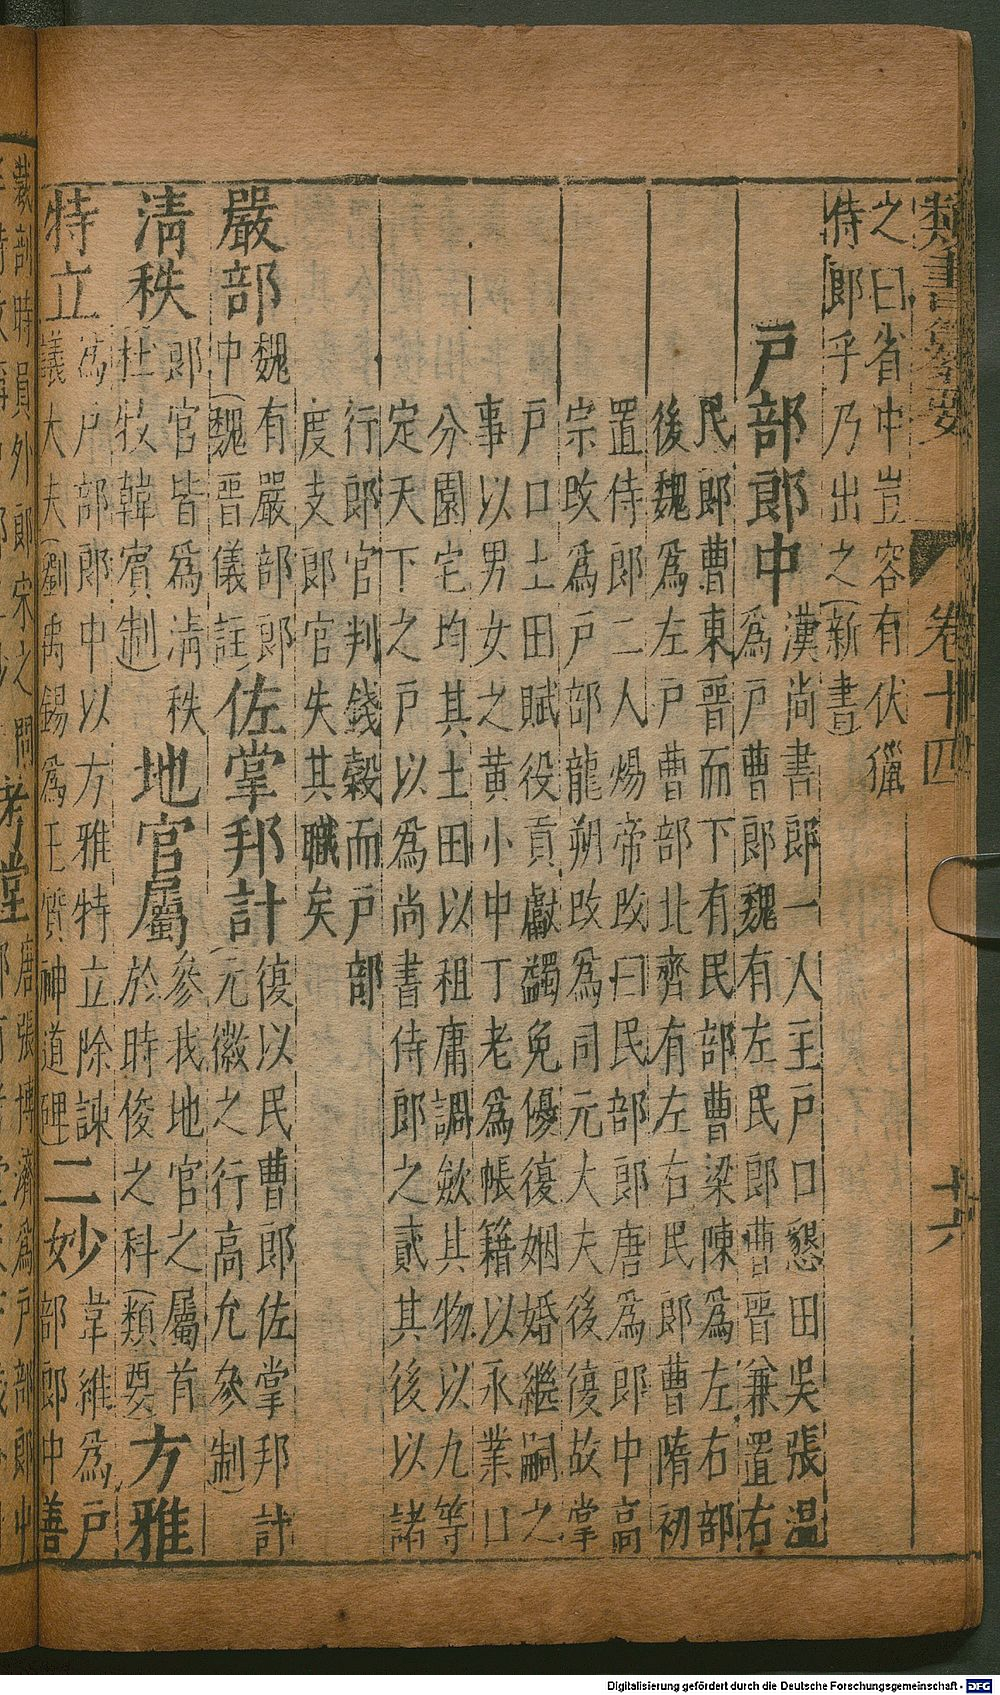 類書纂要 卷十四 十六
之曰省中豈容有伏獵
侍郎乎乃出之(新書)
戶部郎中
漢尚書郎一人主戶口懇田吳張溫
為戶曹郎魏有左民郎曹晉兼置右
民郎曹東晉而下有民部曹梁陳為左右部
後魏為左戶曹部北齊有左右民郎曹隋初
置侍郎二人煬帝改曰民部郎唐為郎中高
宗改為戶部龍朔改為司元大夫後復故掌
戶口土田賦役貢獻蠲免優復姻婚繼嗣之
事以男女之黃小中丁老為帳籍以永業口
分園宅均其土田以租庸調歛其物以九等
定天下之戶以為尚書侍郎之貳其後以諸
行郎官判錢穀而戶部
度支郎官失其職矣
嚴部
魏有嚴部郎
中(魏晉儀註)
佐掌邦計
復以民曹郎佐掌邦計
(元徽之行高允參制)
清秩
郎官皆為清秩
(杜牧韓賓制)
地官屬
參我地官之屬首
於時俊之科(類要)
方雅
特立
為戶部郎中以方雅特立除諫
議大夫(劉禹錫為王質神道碑)
二妙
韋維為戶
部郎中善
裁剖時員外郎宋之問
考堂
唐張博濟為戶部郎中